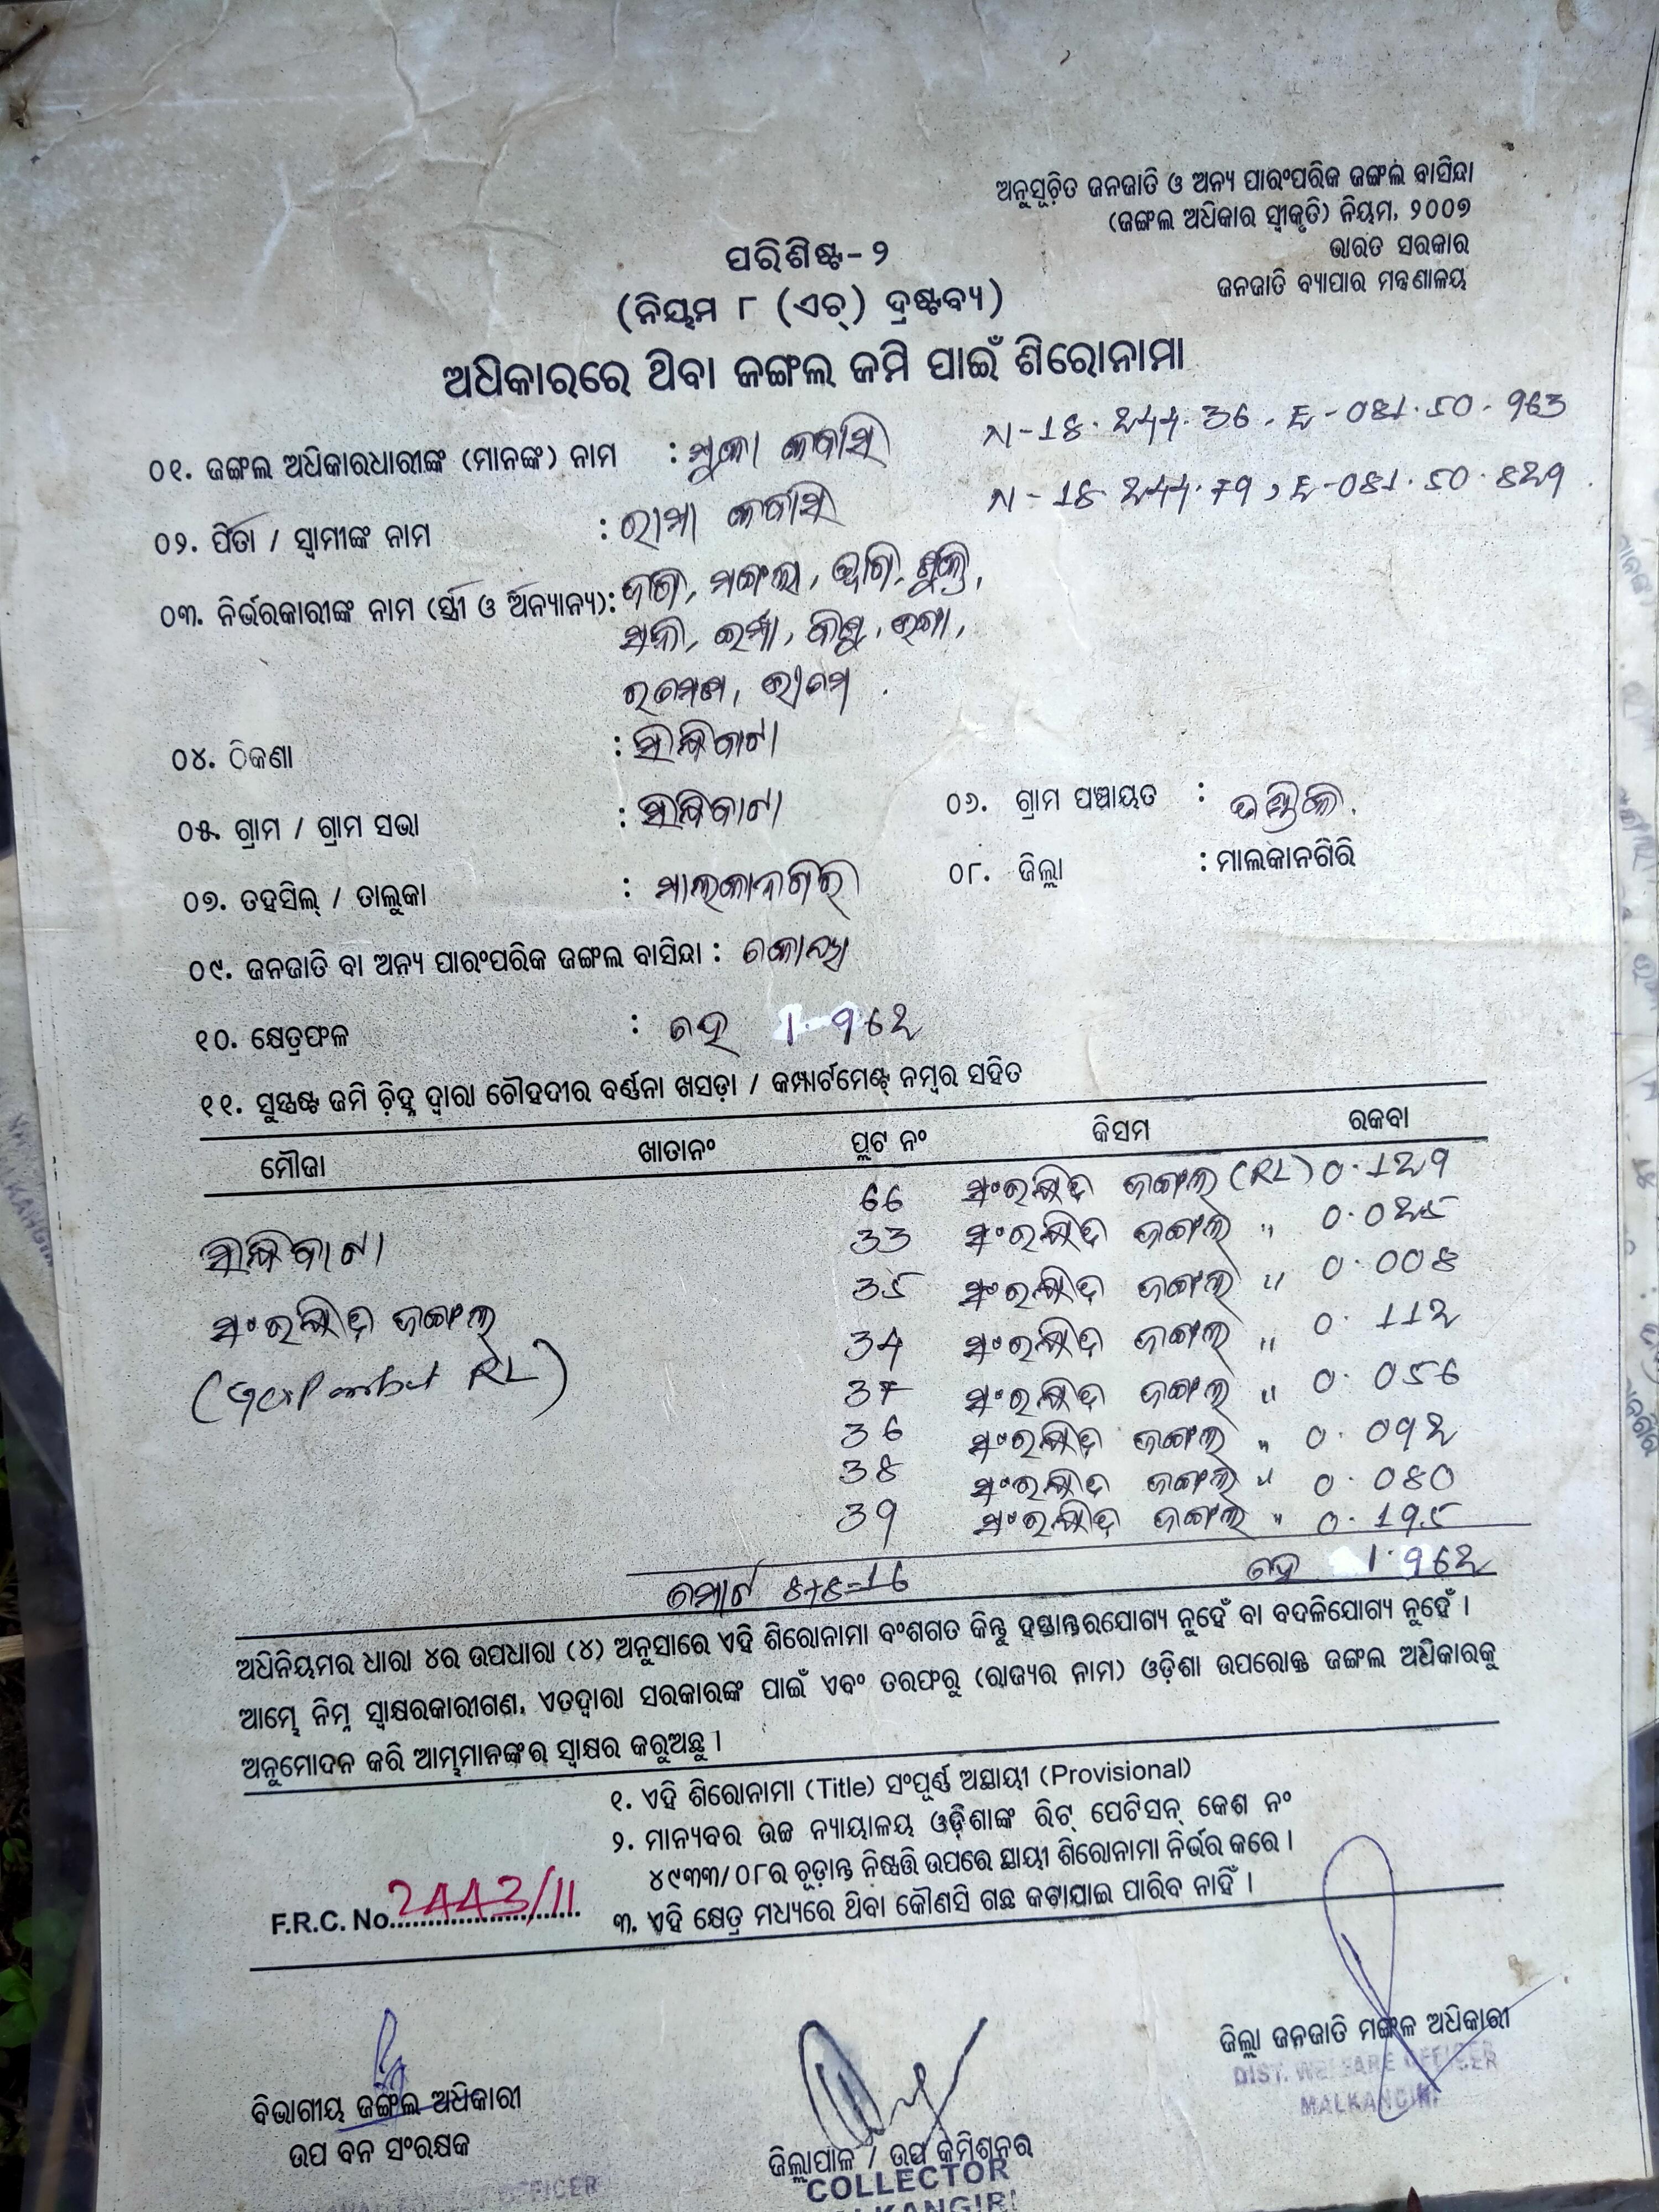 ଅନୁସୂଚିତ ଜନଜାତି ଓ ଅନ୍ୟ ପାରଂପରିକ ଜଙ୍ଗଲ ବାସିନ୍ଦା
(ଜଙ୍ଗଲ ଅଧିକାର ସ୍ୱୀକୃତି) ନିୟମ, ୨୦୦୭
ଭାରତ ସରକାର
ଜନଜାତି ବ୍ୟାପାର ମନ୍ତ୍ରଣାଳୟ
ପରିଶିଷ୍ଟ-୨
(ନିୟମ ୮ (ଏଚ୍) ଦ୍ରଷ୍ଟବ୍ୟ)
ଅଧିକାରରେ ଥିବା ଜଙ୍ଗଲ ଜମି ପାଇଁ ଶିରୋନାମା
୦୧. ଜଙ୍ଗଲ ଅଧିକାରଧାରୀଙ୍କ (ମାନଙ୍କ) ନାମ : ମୁକା କବାସି N-18.244.36, E-081.50.963
୦୨. ପିତା / ସ୍ୱାମୀଙ୍କ ନାମ : ରାମା କବାସି N-18 244.79, E-081.50.829
୦୩. ନିର୍ଭରକାରୀଙ୍କ ନାମ (ସ୍ତ୍ରୀ ଓ ଅନ୍ୟାନ୍ୟ):
୦୪. ଠିକଣା :
୦୫. ଗ୍ରାମ / ଗ୍ରାମ ସଭା : ୦୬. ଗ୍ରାମ ପଞ୍ଚାୟତ :
୦୭. ତହସିଲ୍ / ତାଲୁକା : ମାଲକାନଗିରି ୦୮. ଜିଲ୍ଲା : ମାଲକାନଗିରି
୦୯. ଜନଜାତି ବା ଅନ୍ୟ ପାରଂପରିକ ଜଙ୍ଗଲ ବାସିନ୍ଦା : କୋୟା
୧୦. କ୍ଷେତ୍ରଫଳ : ହେ 1.962
୧୧. ସୁସ୍ପଷ୍ଟ ଜମି ଚିହ୍ନ ଦ୍ୱାରା ଚୌହଦୀର ବର୍ଣ୍ଣନା ଖସଡ଼ା / କମ୍ପାର୍ଟମେଣ୍ଟ୍ ନମ୍ବର ସହିତ
ମୌଜା ଖାତାନଂ ପ୍ଲଟ ନଂ କିସମ ରକବା
66 ସଂରକ୍ଷିତ ଜଙ୍ଗଲ (RL) 0.129
33 ସଂରକ୍ଷିତ ଜଙ୍ଗଲ " 0.025
35 ସଂରକ୍ଷିତ ଜଙ୍ଗଲ " 0.008
ସଂରକ୍ଷିତ ଜଙ୍ଗଲ 34 ସଂରକ୍ଷିତ ଜଙ୍ଗଲ " 0.112
RL) 37 ସଂରକ୍ଷିତ ଜଙ୍ଗଲ " 0.056
36 ସଂରକ୍ଷିତ ଜଙ୍ଗଲ " 0.092
38 ସଂରକ୍ଷିତ ଜଙ୍ଗଲ " 0.080
39 ସଂରକ୍ଷିତ ଜଙ୍ଗଲ " 0.195
ମୋଟ 8+8=16 ହେ 1.962
ଅଧିନିୟମର ଧାରା ୪ର ଉପଧାରା (୪) ଅନୁସାରେ ଏହି ଶିରୋନାମା ବଂଶଗତ କିନ୍ତୁ ହସ୍ତାନ୍ତରଯୋଗ୍ୟ ନୁହେଁ ବା ବଦଳିଯୋଗ୍ୟ ନୁହେଁ ।
ଆମ୍ଭେ ନିମ୍ନ ସ୍ୱାକ୍ଷରକାରୀଗଣ, ଏତଦ୍ୱାରା ସରକାରଙ୍କ ପାଇଁ ଏବଂ ତରଫରୁ (ରାଜ୍ୟର ନାମ) ଓଡ଼ିଶା ଉପରୋକ୍ତ ଜଙ୍ଗଲ ଅଧିକାରକୁ
ଅନୁମୋଦନ କରି ଆମ୍ଭମାନଙ୍କର ସ୍ୱାକ୍ଷର କରୁଅଛୁ ।
୧. ଏହି ଶିରୋନାମା (Title) ସଂପୂର୍ଣ୍ଣ ଅସ୍ଥାୟୀ (Provisional)
୨. ମାନ୍ୟବର ଉଚ୍ଚ ନ୍ୟାୟାଳୟ ଓଡ଼ିଶାଙ୍କ ରିଟ୍ ପେଟିସନ୍ କେଶ ନଂ
୪୯୩୩/୦୮ର ଚୂଡ଼ାନ୍ତ ନିଷ୍ପତ୍ତି ଉପରେ ସ୍ଥାୟୀ ଶିରୋନାମା ନିର୍ଭର କରେ ।
୩. ଏହି କ୍ଷେତ୍ର ମଧ୍ୟରେ ଥିବା କୌଣସି ଗଛ କଟାଯାଇ ପାରିବ ନାହିଁ ।
F.R.C. No. 2443/11
ଜିଲ୍ଲା ଜନଜାତି ମଙ୍ଗଳ ଅଧିକାରୀ
DIST. WELFARE OFFICER
MALKANGIRI
ବିଭାଗୀୟ ଜଙ୍ଗଲ ଅଧିକାରୀ
ଉପ ବନ ସଂରକ୍ଷକ
ଜିଲ୍ଲାପାଳ / ଉପ କମିଶନର
COLLECTOR